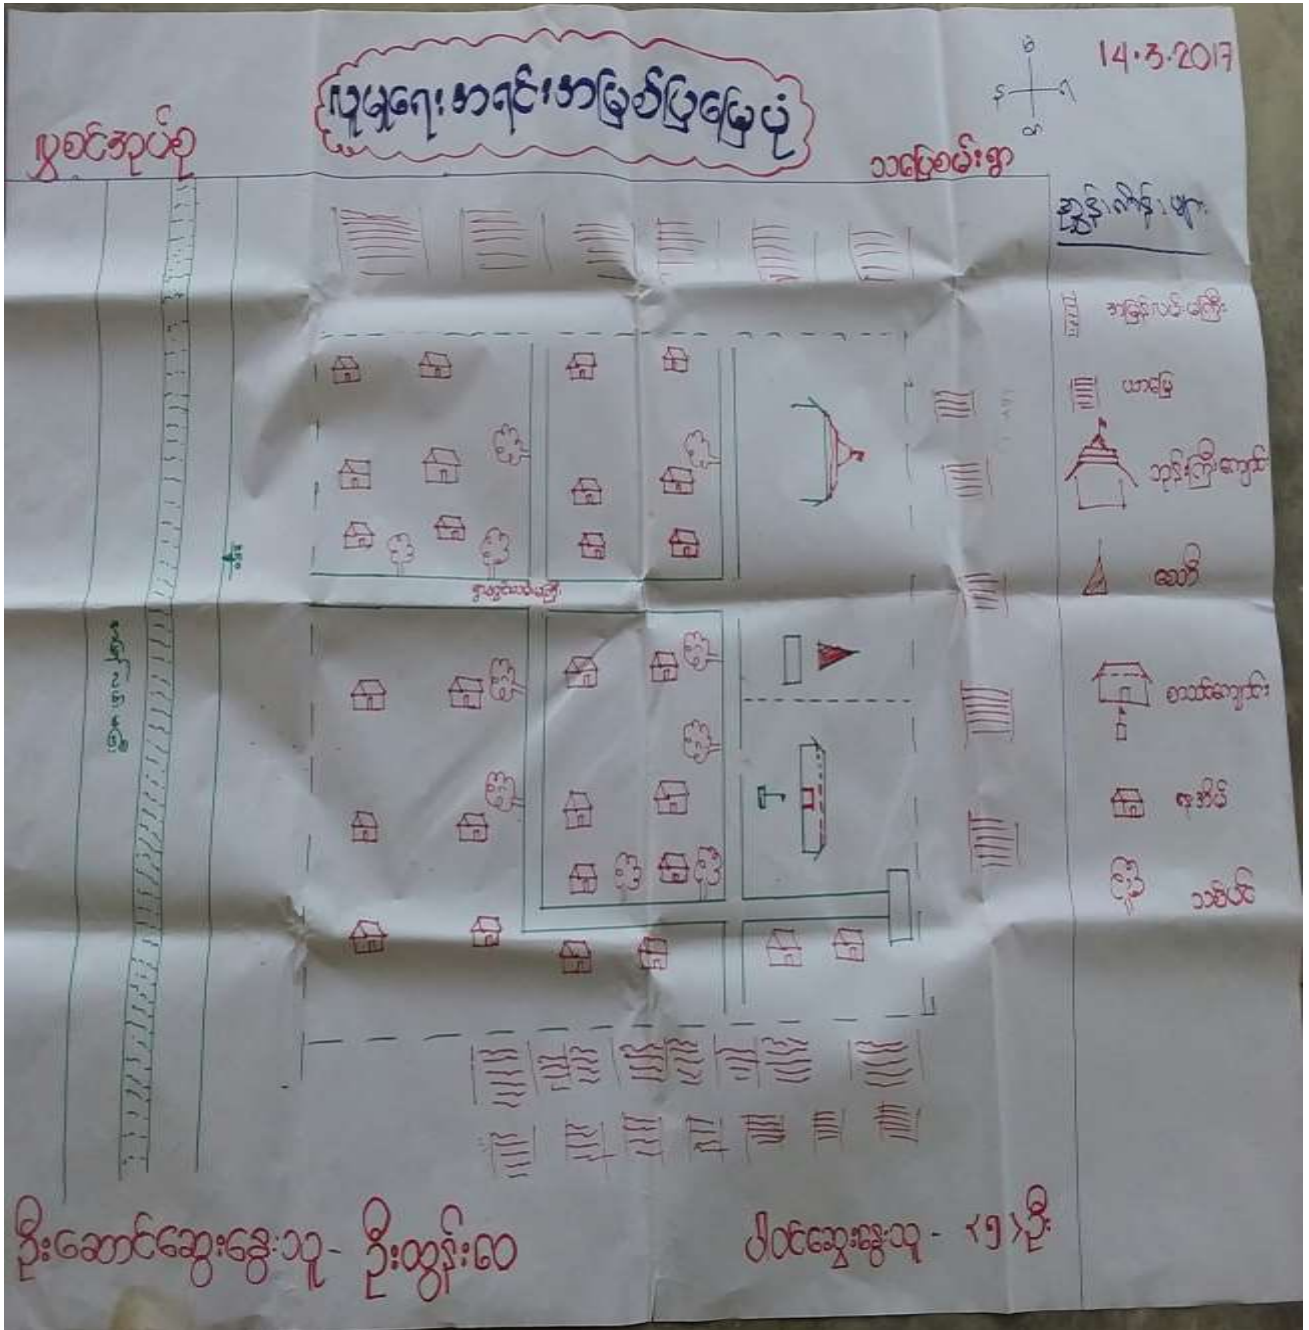 14.3.2017
လူမှုရေးအရင်းအမြစ်ပြမြေပုံ
လှစင်အုပ်စု
သပြေစမ်းရွာ
ညွှန်းကိန်းများ
အမြန်လမ်းမကြီး
ယာမြေ
ဘုန်းကြီးကျောင်း
စေတီ
စာသင်ကျောင်း
နေအိမ်
သစ်ပင်
ရွာတွင်းလမ်းမကြီး
ဦးဆောင်ဆွေးနွေးသူ - ဦးထွန်းဝေ
ပါဝင်ဆွေးနွေးသူ - <၅> ဦး